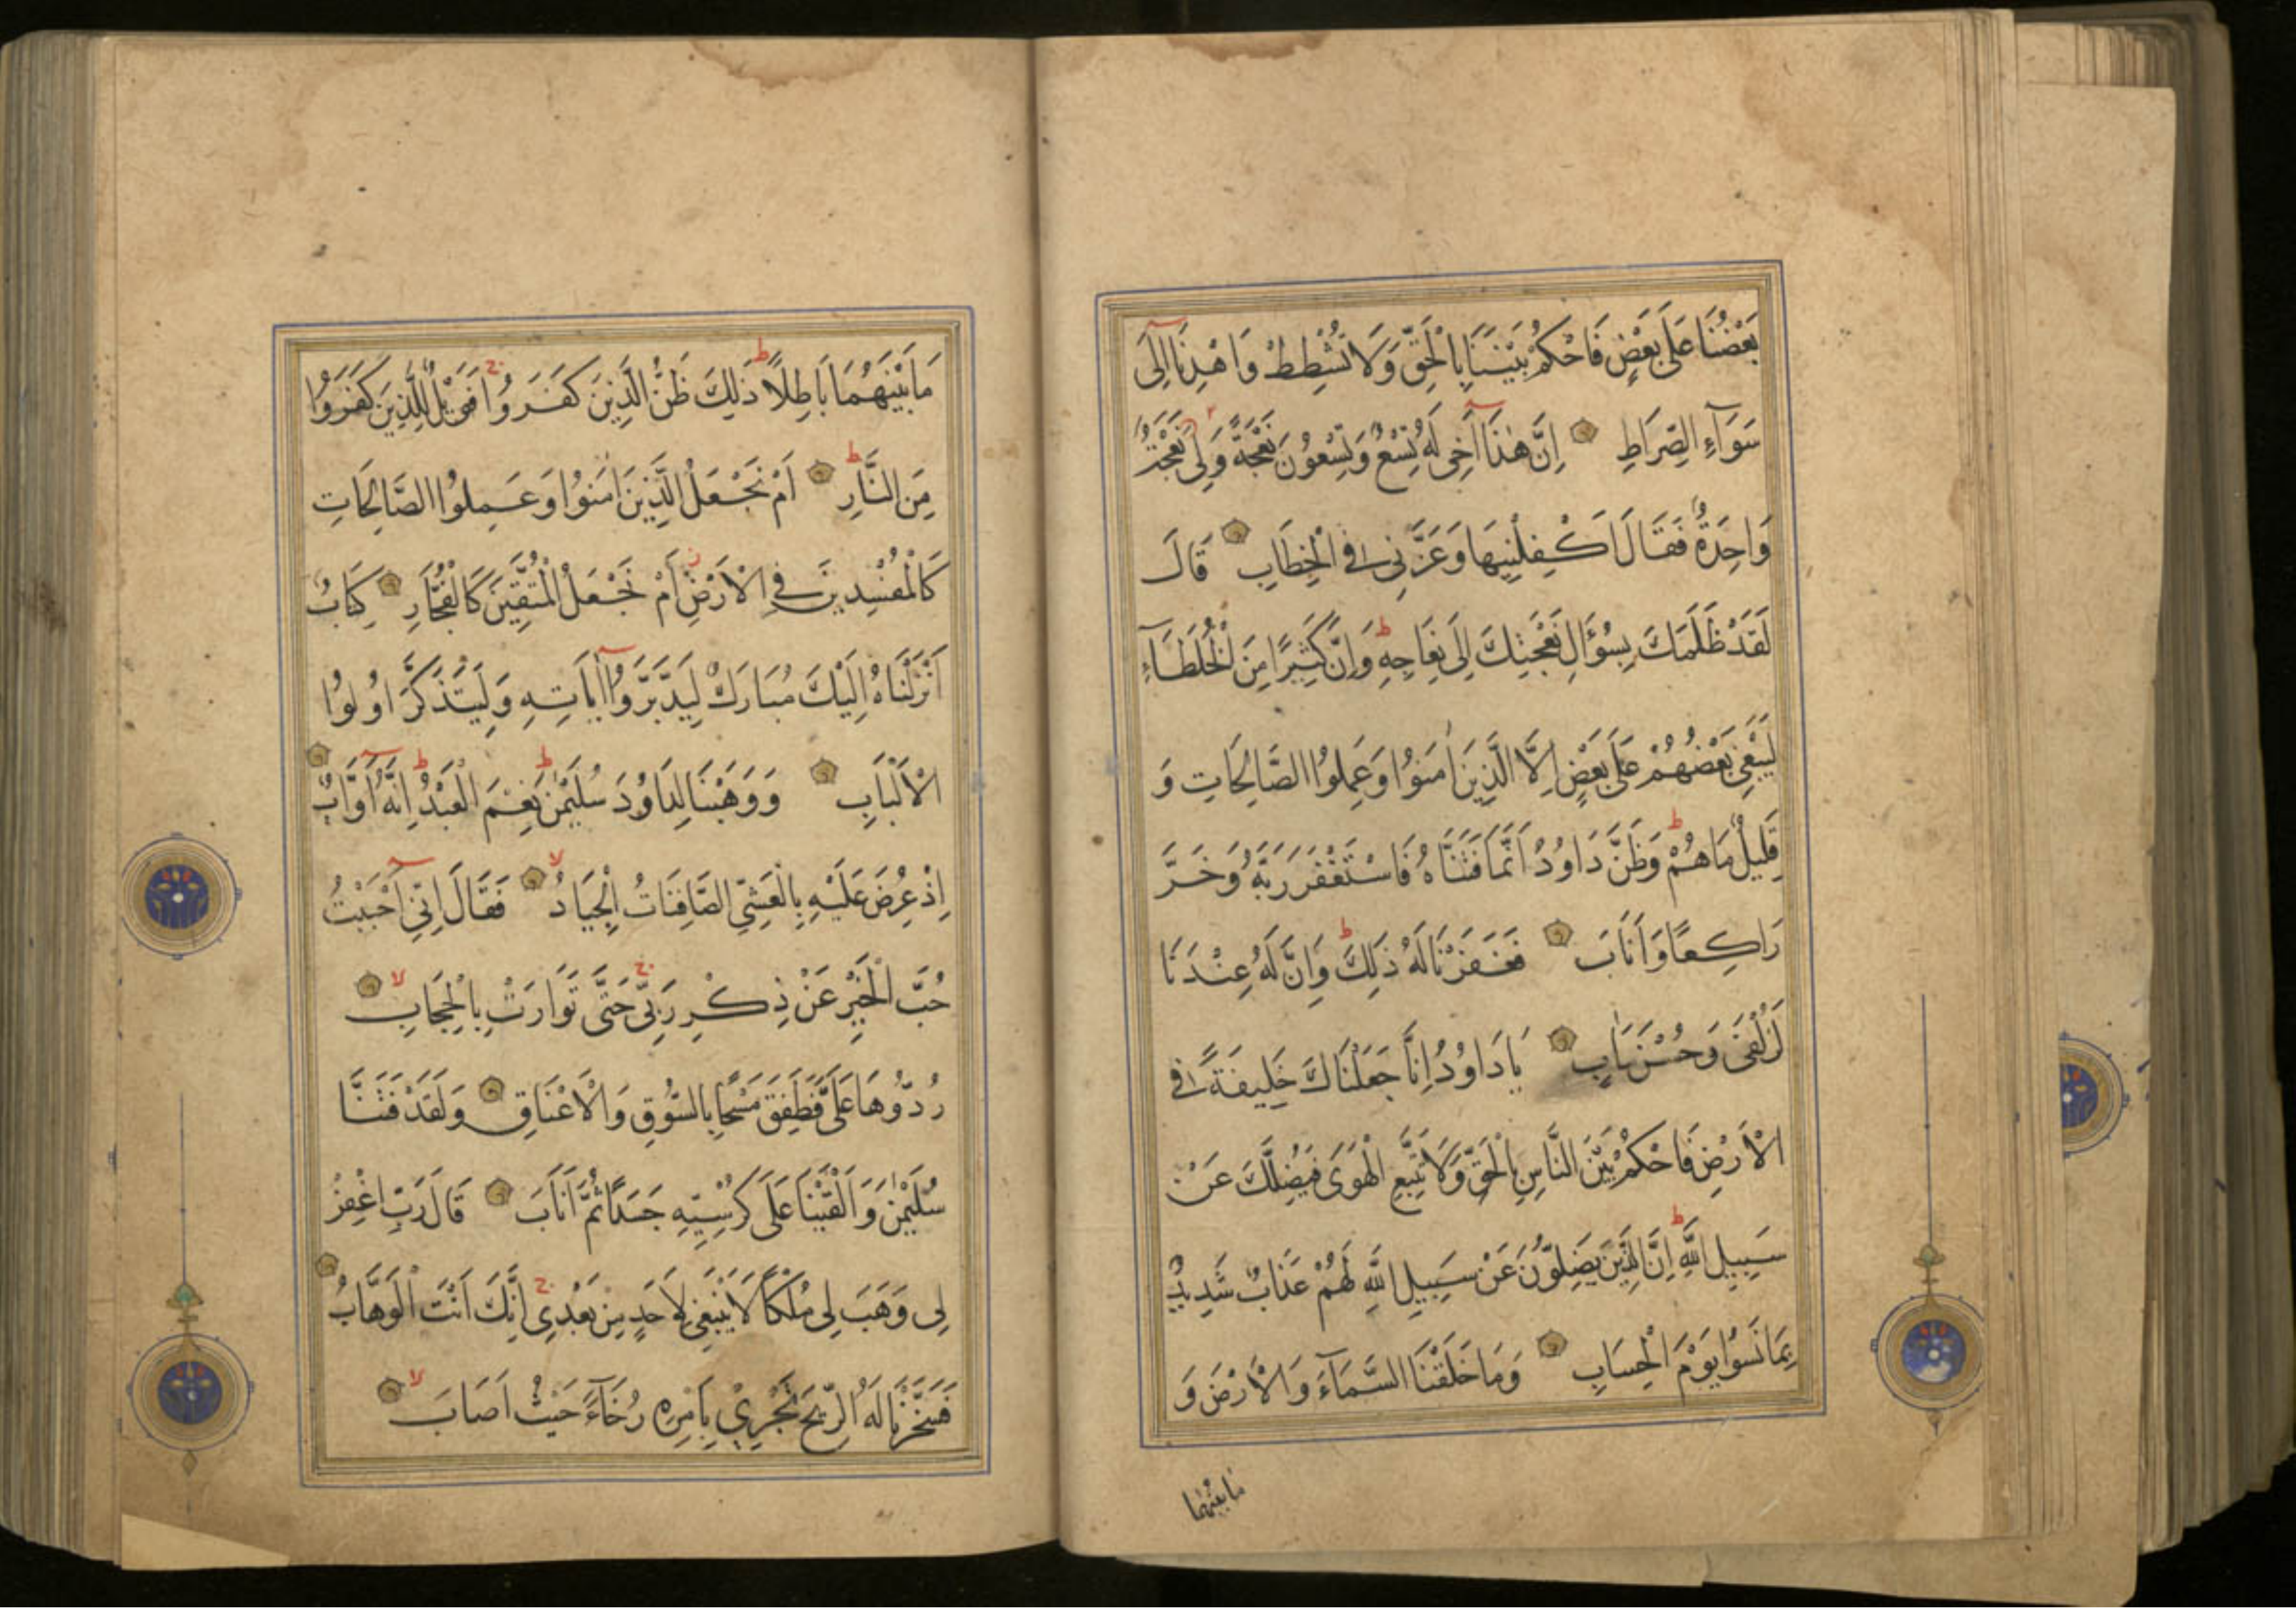 بَعْضُنَا عَلَى بَعْضٍ فَاحْكُمْ بَيْنَنَا بِالْحَقِّ وَلَا تُشْطِطْ وَاهْدِنَا اِلَى
سَوَآءِ الصِّرَاطِ اِنَّ هٰذَا اَخِى لَهُ تِسْعٌ وَتِسْعُونَ نَعْجَةً وَلِىَ نَعْجَةٌ
وَاحِدَةٌ فَقَالَ اَكْفِلْنِيهَا وَعَزَّنِى فِى الْخِطَابِ قَالَ
لَقَدْ ظَلَمَكَ بِسُؤَالِ نَعْجَتِكَ اِلَى نِعَاجِهِ ط وَاِنَّ كَثِيرًا مِنَ الْخُلَطَآءِ
لَيَبْغِى بَعْضُهُمْ عَلَى بَعْضٍ اِلَّا الَّذِينَ اٰمَنُوا وَعَمِلُوا الصَّالِحَاتِ وَ
قَلِيلٌ مَا هُمْ ط وَظَنَّ دَاوُدُ اَنَّمَا فَتَنَّاهُ فَاسْتَغْفَرَ رَبَّهُ وَخَرَّ
رَاكِعًا وَاَنَابَ فَغَفَرْنَا لَهُ ذٰلِكَ ط وَاِنَّ لَهُ عِنْدَنَا
لَزُلْفَى وَحُسْنَ مَاٰبٍ يَا دَاوُدُ اِنَّا جَعَلْنَاكَ خَلِيفَةً فِى
الْاَرْضِ فَاحْكُمْ بَيْنَ النَّاسِ بِالْحَقِّ وَلَا تَتَّبِعِ الْهَوَى فَيُضِلَّكَ عَنْ
سَبِيلِ اللّٰهِ ط اِنَّ الَّذِينَ يَضِلُّونَ عَنْ سَبِيلِ اللّٰهِ لَهُمْ عَذَابٌ شَدِيدٌ
بِمَا نَسُوا يَوْمَ الْحِسَابِ وَمَا خَلَقْنَا السَّمَآءَ وَالْاَرْضَ وَ
مَابَيْنَهُمَا
مَا بَيْنَهُمَا بَاطِلًا ط ذٰلِكَ ظَنُّ الَّذِينَ كَفَرُوا ج فَوَيْلٌ لِلَّذِينَ كَفَرُوا
مِنَ النَّارِ ط اَمْ نَجْعَلُ الَّذِينَ اٰمَنُوا وَعَمِلُوا الصَّالِحَاتِ
كَالْمُفْسِدِينَ فِى الْاَرْضِ ز اَمْ نَجْعَلُ الْمُتَّقِينَ كَالْفُجَّارِ كِتَابٌ
اَنْزَلْنَاهُ اِلَيْكَ مُبَارَكٌ لِيَدَّبَّرُوا اٰيَاتِهِ وَلِيَتَذَكَّرَ اُولُوا
الْاَلْبَابِ وَوَهَبْنَا لِدَاوُدَ سُلَيْمٰنَ ط نِعْمَ الْعَبْدُ ط اِنَّهُ اَوَّابٌ
اِذْ عُرِضَ عَلَيْهِ بِالْعَشِىِّ الصَّافِنَاتُ الْجِيَادُ لا فَقَالَ اِنِّى اَحْبَبْتُ
حُبَّ الْخَيْرِ عَنْ ذِكْرِ رَبِّى ج حَتَّى تَوَارَتْ بِالْحِجَابِ لا
رُدُّوهَا عَلَىَّ فَطَفِقَ مَسْحًا بِالسُّوقِ وَالْاَعْنَاقِ وَلَقَدْ فَتَنَّا
سُلَيْمٰنَ وَاَلْقَيْنَا عَلَى كُرْسِيِّهِ جَسَدًا ثُمَّ اَنَابَ قَالَ رَبِّ اغْفِرْ
لِى وَهَبَ لِى مُلْكًا لَا يَنْبَغِى لِاَحَدٍ مِنْ بَعْدِى ج اِنَّكَ اَنْتَ الْوَهَّابُ
فَسَخَّرْنَا لَهُ الرِّيحَ تَجْرِي بِاَمْرِهِ رُخَآءً حَيْثُ اَصَابَ لا